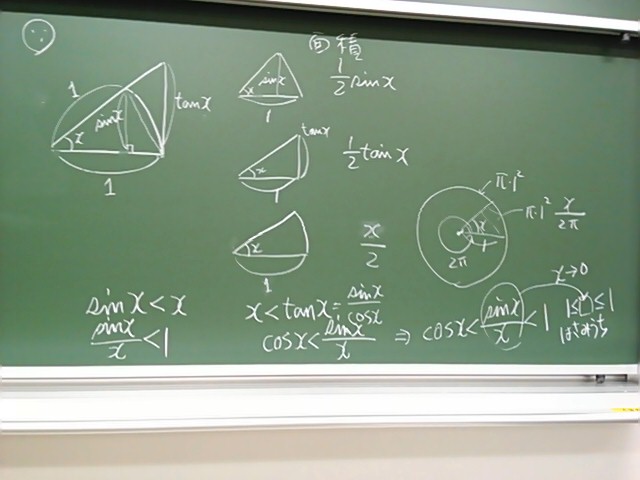 面積
1
sinx
x
1
tanx
sinx
x
1
1/2 sinx
tanx
x
1
1/2 tanx
x
1
x/2
π・1²
π・1² x/2π
x
1
2π
sinx < x
sinx/x < 1
x < tanx = sinx/cosx
cosx < sinx/x ⇒ cosx < sinx/x < 1
x→0
1≤□≤1
はさみうち